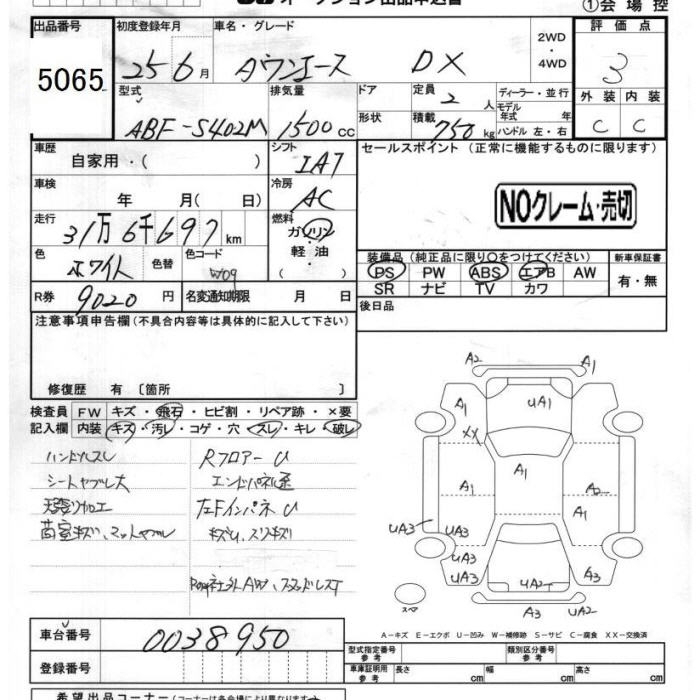 ①会場控
出品番号 5065
初度登録年月 25 6月
車名・グレード タウンエース DX
2WD・4WD
評価点 3
外装 C
内装 C
型式 ABF-S402M
排気量 1500cc
ドア 形状
定員 2人
積載 750kg
ディーラー・並行
モデル年式 年
ハンドル 左・右
車歴 自家用・( )
シフト IAT
セールスポイント (正常に機能するものに限ります)
車検 年 月( 日)
冷房 AC
NOクレーム・売切
走行 31万6千697km
燃料 ガソリン・軽油・( )
色 ホワイト 色替
色コード W09
装備品 (純正品に限り○をつけてください)
新車保証書
PS PW ABS エアB AW
有・無
SR ナビ TV カワ
R券 9020円
名変通知期限 月 日
後日品
注意事項申告欄 (不具合内容等は具体的に記入して下さい)
修復歴 有 [箇所 ]
検査員 FW キズ・飛石・ヒビ割・リペア跡・×要
記入欄 内装 キズ・汚レ・コゲ・穴・スレ・キレ・破レ
ハンドルスレ
RフロアーU
シートヤブレ大
天張り加工
左FインパネU
キズU、スリキズ
A2 A1
A1 UA1
XX
A1
A1 A2
A1
UA3 UA3
UA3
UA3 UA2 A3
スペア
A3 UA2
A-キズ E-エクボ U-凹み W-補修跡 S-サビ C-腐食 XX-交換済
車台番号 0038950
登録番号
型式指定番号 参考
類別区分番号 参考
車庫証明用 参考 長さ cm 幅 cm 高さ cm
希望出品コーナー (コーナーは各会場により異なります)